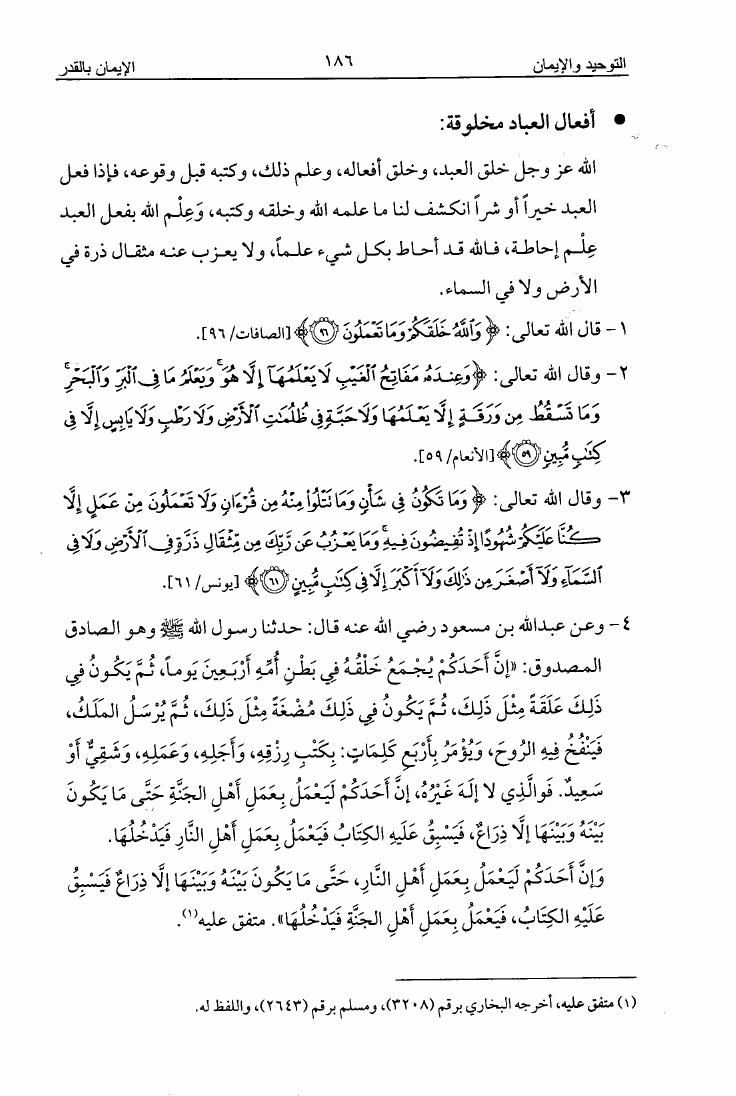 التوحيد والإيمان ١٨٦ الإيمان بالقدر
• أفعال العباد مخلوقة:
الله عز وجل خلق العبد، وخلق أفعاله، وعلم ذلك، وكتبه قبل وقوعه، فإذا فعل
العبد خيراً أو شراً انكشف لنا ما علمه الله وخلقه وكتبه، وَعِلْم الله بفعل العبد
عِلْم إحاطة، فالله قد أحاط بكل شيء علماً، ولا يعزب عنه مثقال ذرة في
الأرض ولا في السماء.
١- قال الله تعالى: ﴿وَاللَّهُ خَلَقَكُمْ وَمَا تَعْمَلُونَ ۝٩٦﴾ [الصافات/ ٩٦].
٢- وقال الله تعالى: ﴿وَعِندَهُ مَفَاتِحُ الْغَيْبِ لَا يَعْلَمُهَا إِلَّا هُوَ ۚ وَيَعْلَمُ مَا فِي الْبَرِّ وَالْبَحْرِ ۚ
وَمَا تَسْقُطُ مِن وَرَقَةٍ إِلَّا يَعْلَمُهَا وَلَا حَبَّةٍ فِي ظُلُمَاتِ الْأَرْضِ وَلَا رَطْبٍ وَلَا يَابِسٍ إِلَّا فِي
كِتَابٍ مُّبِينٍ ۝٥٩﴾ [الأنعام/ ٥٩].
٣- وقال الله تعالى: ﴿وَمَا تَكُونُ فِي شَأْنٍ وَمَا تَتْلُوا مِنْهُ مِن قُرْءَانٍ وَلَا تَعْمَلُونَ مِنْ عَمَلٍ إِلَّا
كُنَّا عَلَيْكُمْ شُهُودًا إِذْ تُفِيضُونَ فِيهِ ۚ وَمَا يَعْزُبُ عَن رَّبِّكَ مِن مِّثْقَالِ ذَرَّةٍ فِي الْأَرْضِ وَلَا فِي
السَّمَاءِ وَلَا أَصْغَرَ مِن ذَٰلِكَ وَلَا أَكْبَرَ إِلَّا فِي كِتَابٍ مُّبِينٍ ۝٦١﴾ [يونس/ ٦١].
٤- وعن عبدالله بن مسعود رضي الله عنه قال: حدثنا رسول الله ﷺ وهو الصادق
المصدوق: «إنَّ أَحَدَكُمْ يُجْمَعُ خَلْقُهُ فِي بَطْنِ أُمِّهِ أَرْبَعِينَ يَوماً، ثُمَّ يَكُونُ فِي
ذَلِكَ عَلَقَةً مِثْلَ ذَلِكَ، ثُمَّ يَكُونُ فِي ذَلِكَ مُضْغَةً مِثْلَ ذَلِكَ، ثُمَّ يُرْسَلُ المَلَكُ،
فَيَنْفُخُ فِيهِ الرُوحَ، وَيُؤْمَرُ بِأَرْبَعِ كَلِمَاتٍ: بِكَتْبِ رِزْقِهِ، وَأَجَلِهِ، وَعَمَلِهِ، وَشَقِيٌّ أَوْ
سَعِيدٌ. فَوالَّذِي لا إلَهَ غَيْرُهُ، إنَّ أَحَدَكُمْ لَيَعْمَلُ بِعَمَلِ أَهْلِ الجَنَّةِ حَتَّى مَا يَكُونَ
بَيْنَهُ وَبَيْنَهَا إلَّا ذِرَاعٌ، فَيَسْبِقُ عَلَيْهِ الكِتَابُ فَيَعْمَلُ بِعَمَلِ أَهْلِ النَّارِ فَيَدْخُلُهَا.
وَإنَّ أَحَدَكُمْ لَيَعْمَلُ بِعَمَلِ أَهْلِ النَّارِ، حَتَّى مَا يَكُونَ بَيْنَهُ وَبَيْنَهَا إلَّا ذِرَاعٌ فَيَسْبِقُ
عَلَيْهِ الكِتَابُ، فَيَعْمَلُ بِعَمَلِ أَهْلِ الجَنَّةِ فَيَدْخُلُهَا». متفق عليه(١).
(١) متفق عليه، أخرجه البخاري برقم (٣٢٠٨)، ومسلم برقم (٢٦٤٣)، واللفظ له.